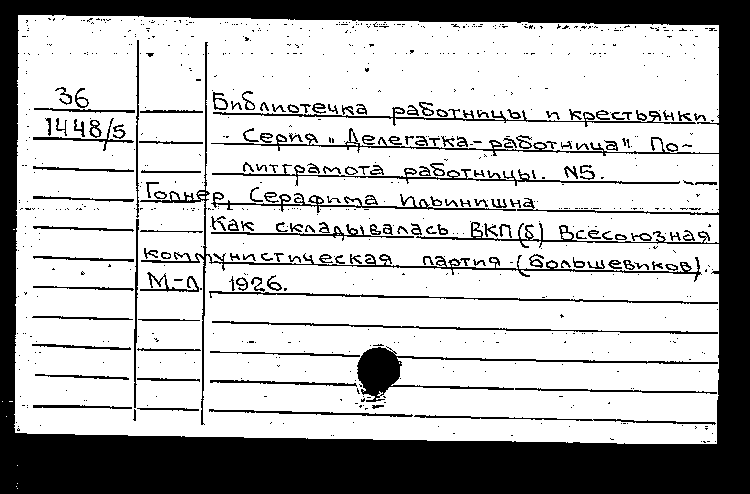 36
1448/5
Библиотечка работницы и крестьянки.
Серия „Делегатка-работница" По-
литграмота работницы. N5.
Гопнер, Серафима Ильинишна
Как складывалась ВКП(б) Всесоюзная
коммунистическая партия (большевиков).
М.-Л. 1926.